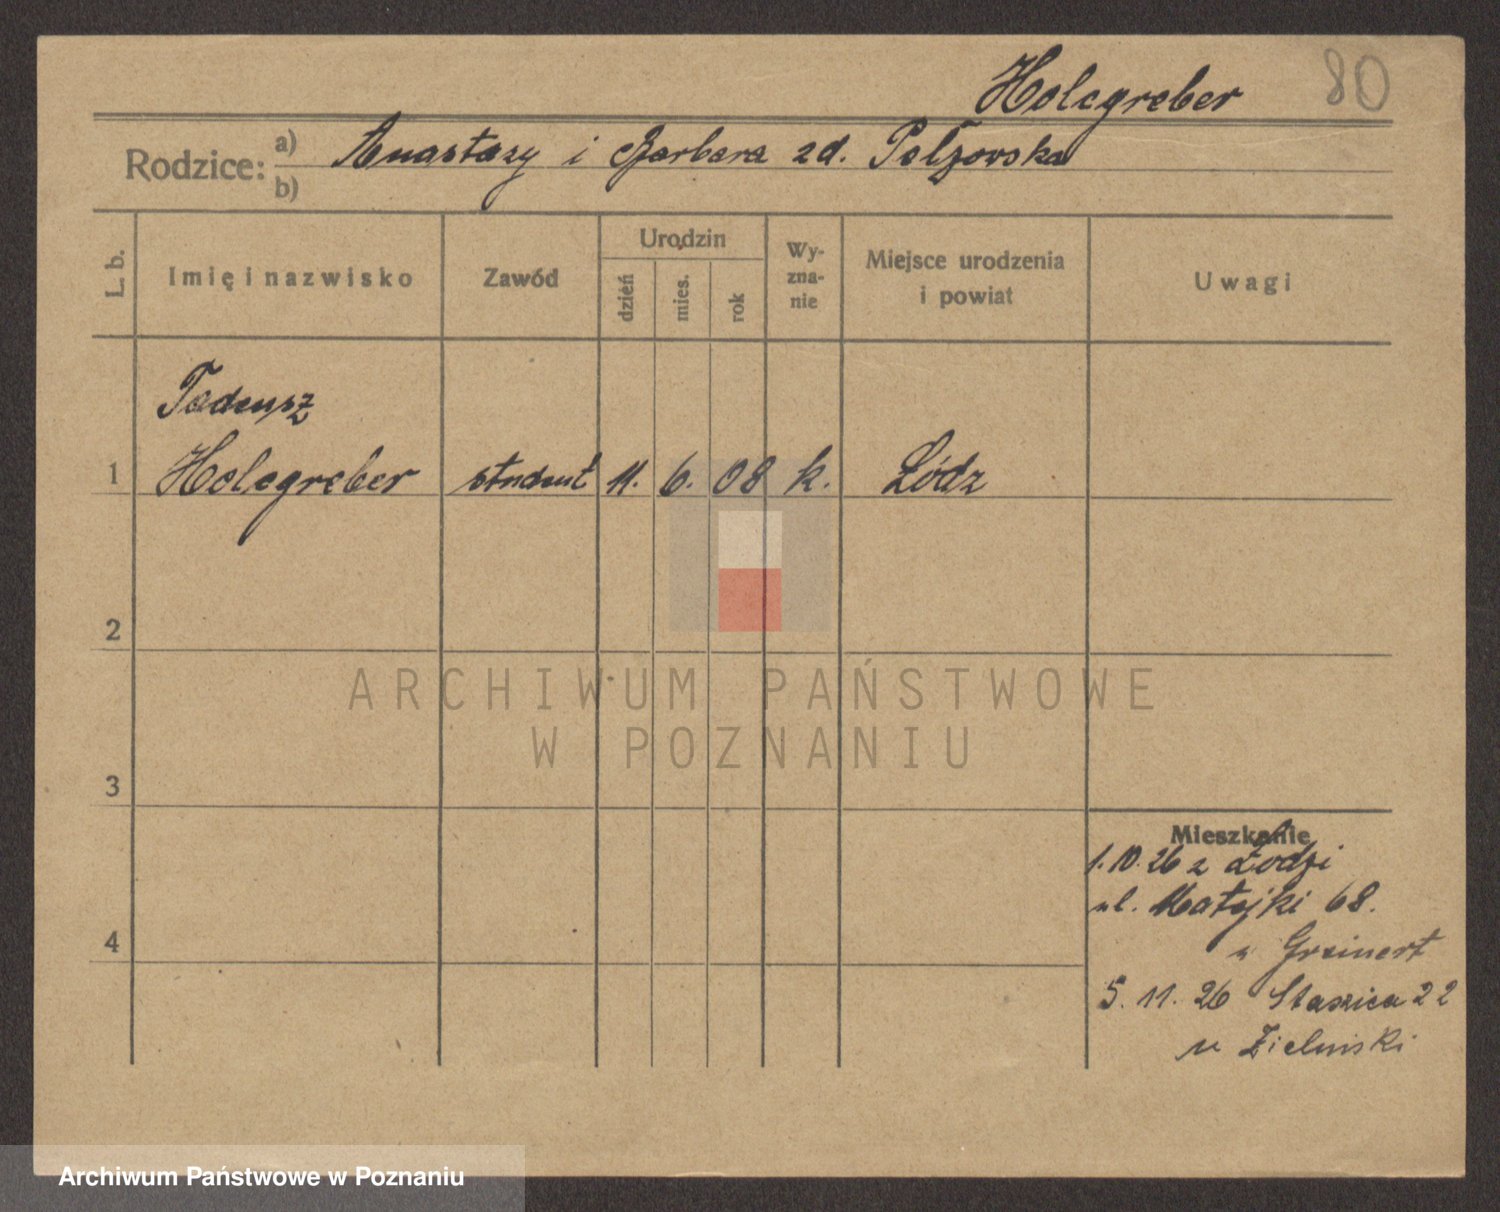 Holcgreber 80
Rodzice: a) Anastazy i Barbara zd. Pelzowska
b)
L. b. Imię i nazwisko Zawód Urodzin dzień mies. rok Wyznanie Miejsce urodzenia i powiat Uwagi
Tadeusz
1 Holcgreber student 11. 6. 08 k. Łódz
2
ARCHIWUM PAŃSTWOWE
W POZNANIU
3
Mieszkanie
1.10.26 z Łodzi
ul. Matejki 68.
4
u Greinert
5.11.26 Staszica 22
u Zielinski
Archiwum Państwowe w Poznaniu